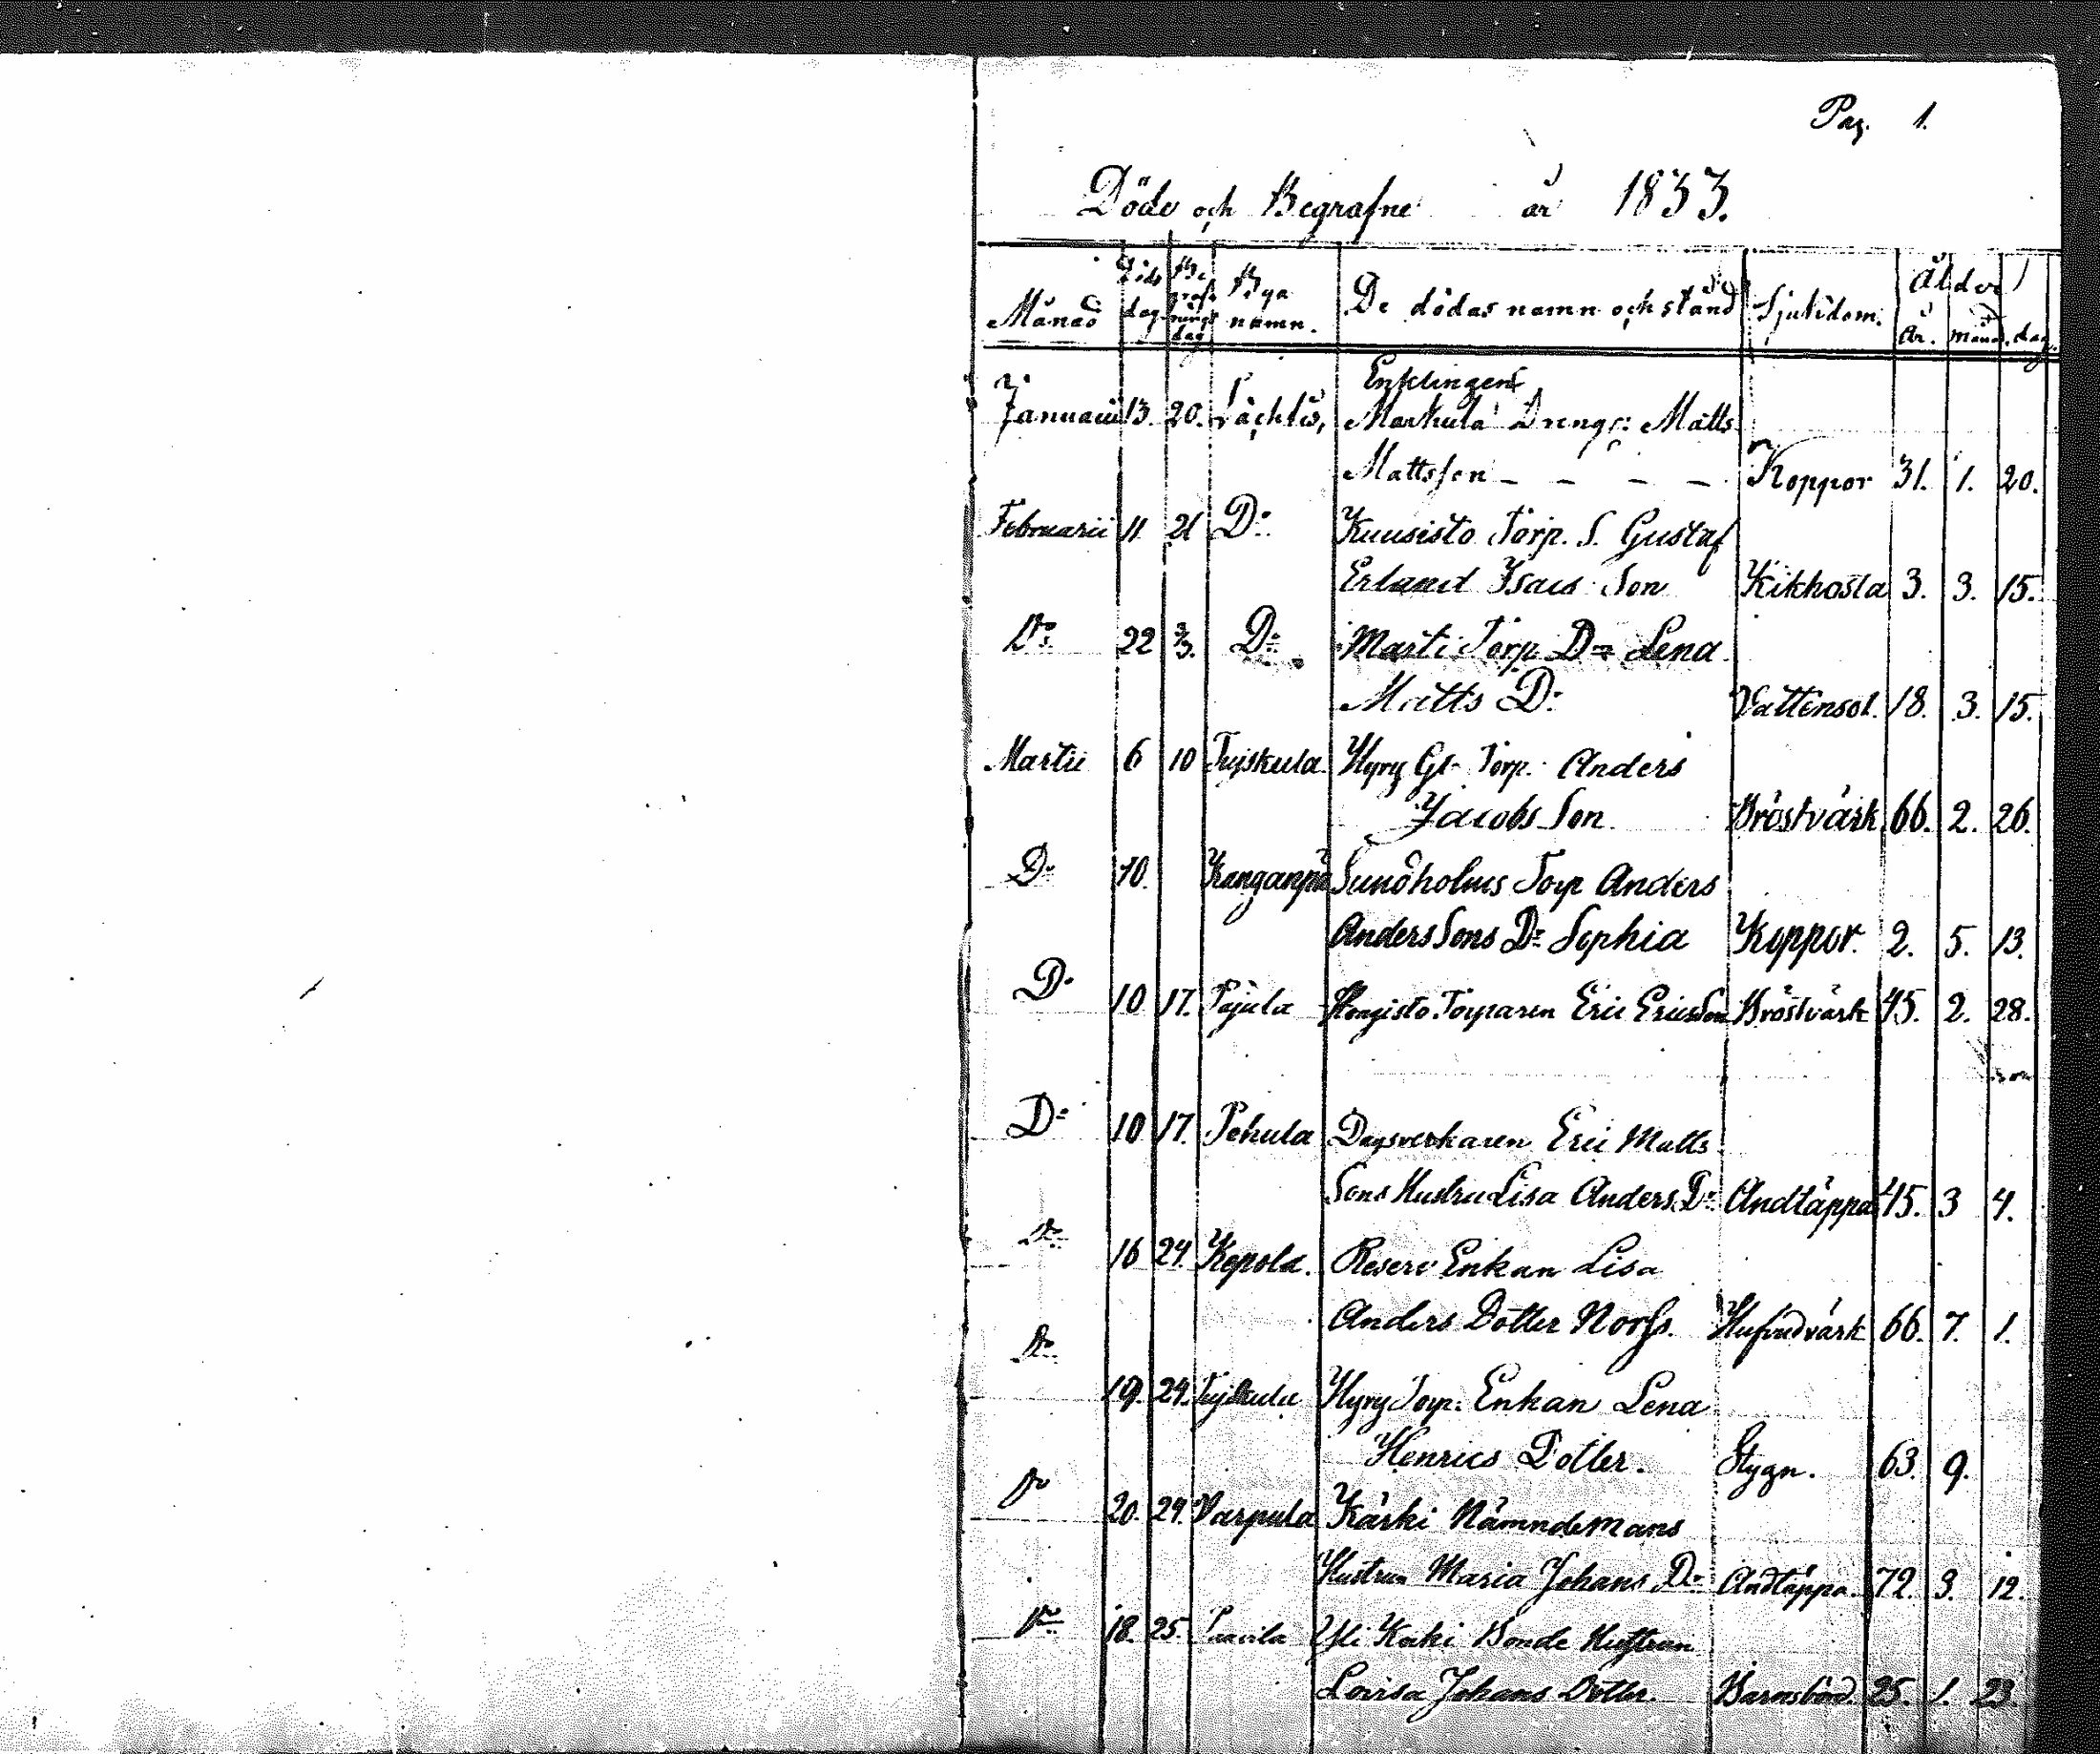 Pag. 1.
Döde och Begrafne år 1833.
Månad Döds dag Be grafnings dag Bya namn. De dödas namn och stånd Sjukdom. Ålder
År. Månad. dag.
Enklingen
Januarii 13. 20. Lächtis, Markula Drengs: Matts
Mattsson - - - - Koppor 31. 1. 20.
Februarii 11 21 D:o Kuusisto Torp. S. Gustaf
Erland Isacs Son Kikhosta 3. 3. 15.
D:o 22 3/3. D:o Marti Torp D:r Lena
Matts D:r Vattensot. 18. 3. 15.
Martii 6 10 Tujskula Hyry Gl. Torp. Anders
Jacobs Son Bröstvärk 66. 2. 26.
D:o 10. Kanganpä Sundholms Torp Anders
Anders Sons D:r Sophia Koppor. 2. 5. 13.
D:o 10 17. Pajula Kongisto Torparen Eric Ericsson Bröstvärk 45. 2. 28.
D:o 10 17. Pehula Dagsverkaren Eric Matts
Sons Hustru Lisa Anders D:r Andtäppa 45. 3 4.
D:o 16 24. Kepola. Reserv Enkan Lisa
Anders Dotter Norss. Hufvudvärk 66. 7. 1.
D:o 19. 24. Tujskula Hyry Torp. Enkan Lena
Henrics Dotter. Stygn. 63. 9.
D:o 20. 24. Varpula Kärki Nämndemans
Hustrun Maria Johans D:r Andtäppa. 72. 3. 12.
D:o 18. 25. Yli Bonde Hustrun
Lovisa Johans Dotter. Barnsbörd. 25. 1. 23